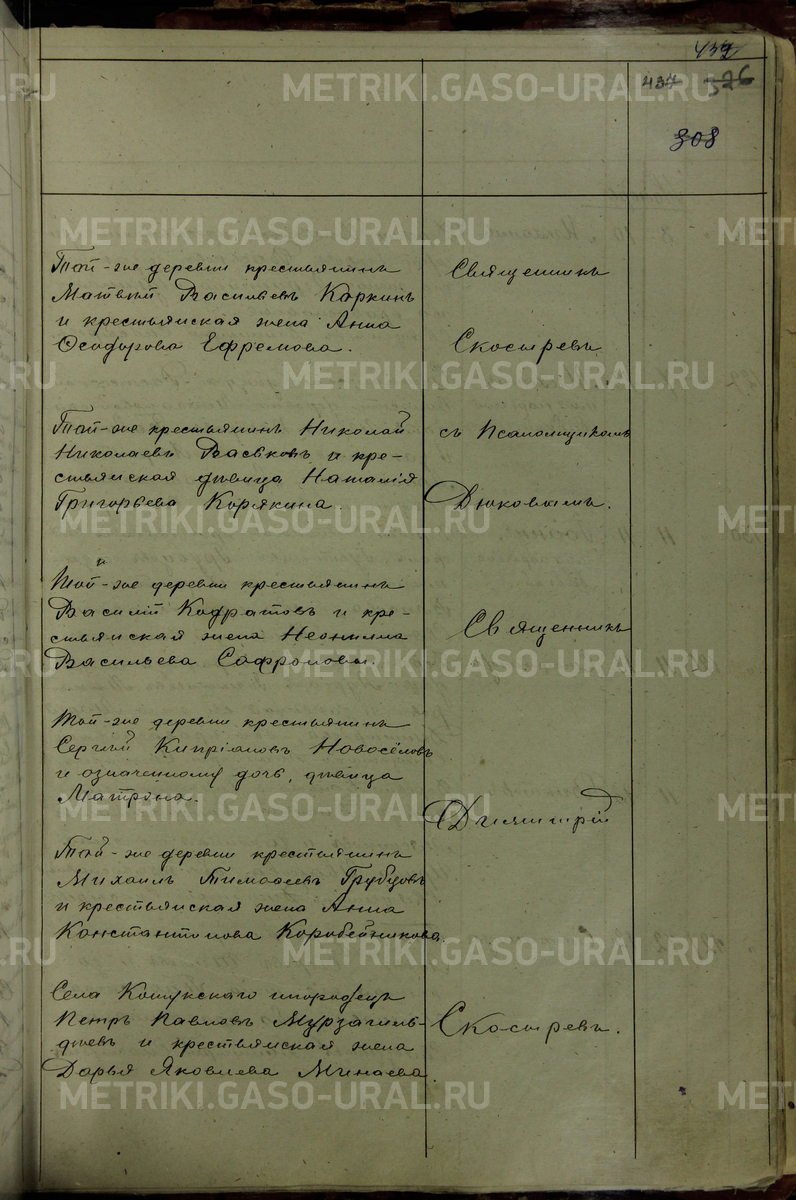 439
437 326
308
Той-же деревни крестьянинъ
Матвѣй Васильевъ Каркинъ
и крестьянская жена Анна
Ѳеодорова Ефремова.
Священникъ
Скосыревъ
Той-же крестьянинъ Николай
Николаевъ Васьковъ и кре-
стьянская дѣвица Наталія
Григорьева Корякина.
съ Псаломщикомъ
Дюковымъ.
Той-же деревни крестьянинъ
Василій Кодратовъ и кре-
стьянская жена Неонилла
Васильева Сафронова.
Священникъ
Той-же деревни крестьянинъ
Сергѣй Кипріановъ Новосёловъ
и означенному дочь, дѣвица
Матрона.
Димитрій
Той-же деревни крестьянинъ
Михаилъ Тимофеевъ Грубцовъ
и крестьянская жена Анна
Константинова Коробейникова.
Села Кошукскаго инородецъ
Петръ Павловъ Мурзагиль-
дѣевъ и крестьянская жена
Дарья Яковлева Минаева
Скосыревъ.
METRIKI.GASO-URAL.RU